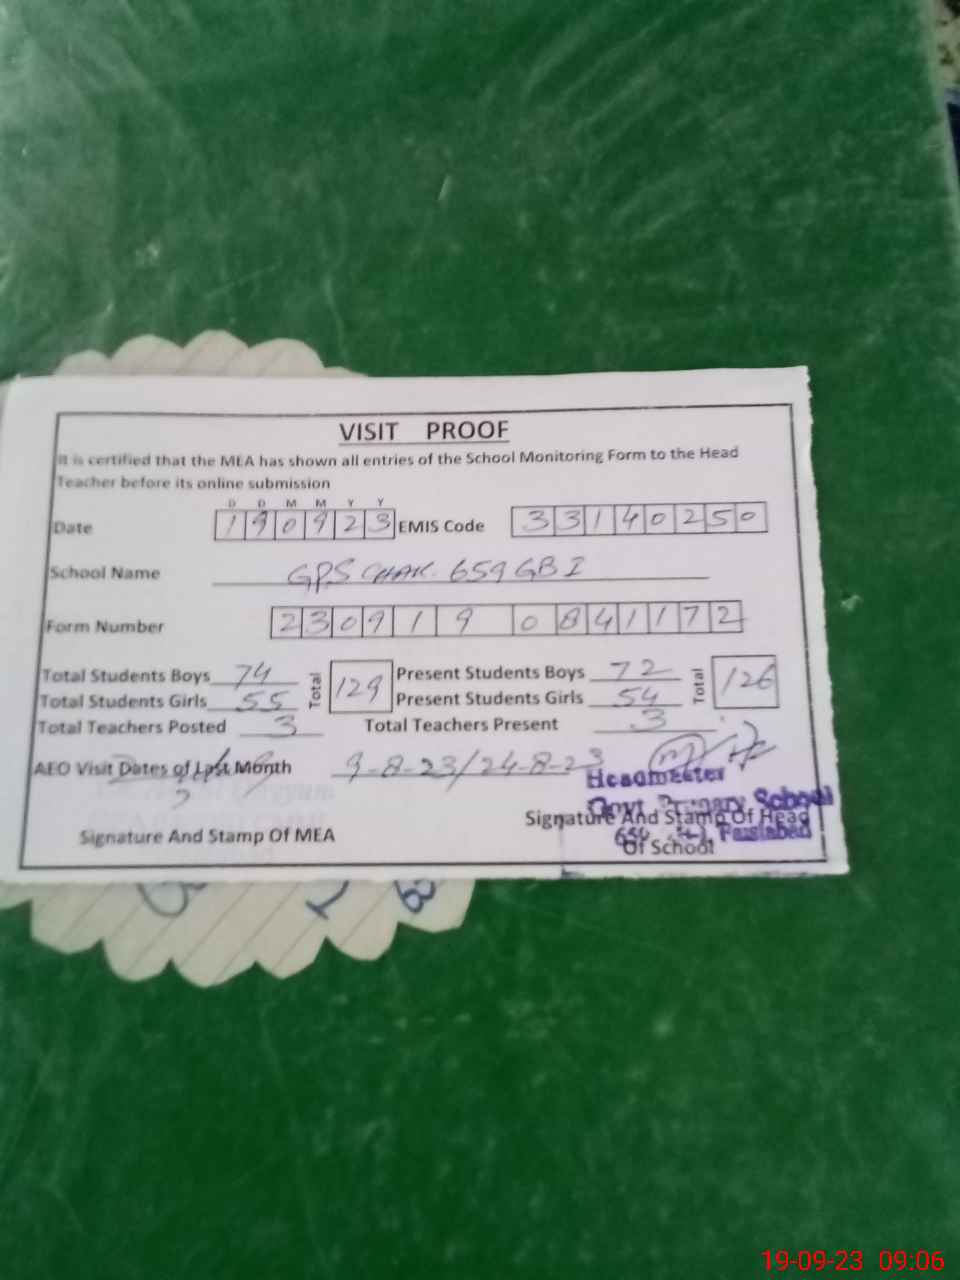 VISIT PROOF
It is certified that the MEA has shown all entries of the School Monitoring Form to the Head
Teacher before its online submission
D D M M Y Y
Date 190923 EMIS Code 33140250
School Name GPS CHAK. 659 GB I
Form Number 230919 0841172
Total Students Boys 74 Total 129 Present Students Boys 72 Total 126
Total Students Girls 55 Present Students Girls 54
Total Teachers Posted 3 Total Teachers Present 3
AEO Visit Dates of Last Month 9-8-23/24-8-23
Headmaster
Govt Primary School
Signature And Stamp Of MEA Signature And Stamp Of Head
Faislabad
Of School
19-09-23 09:06